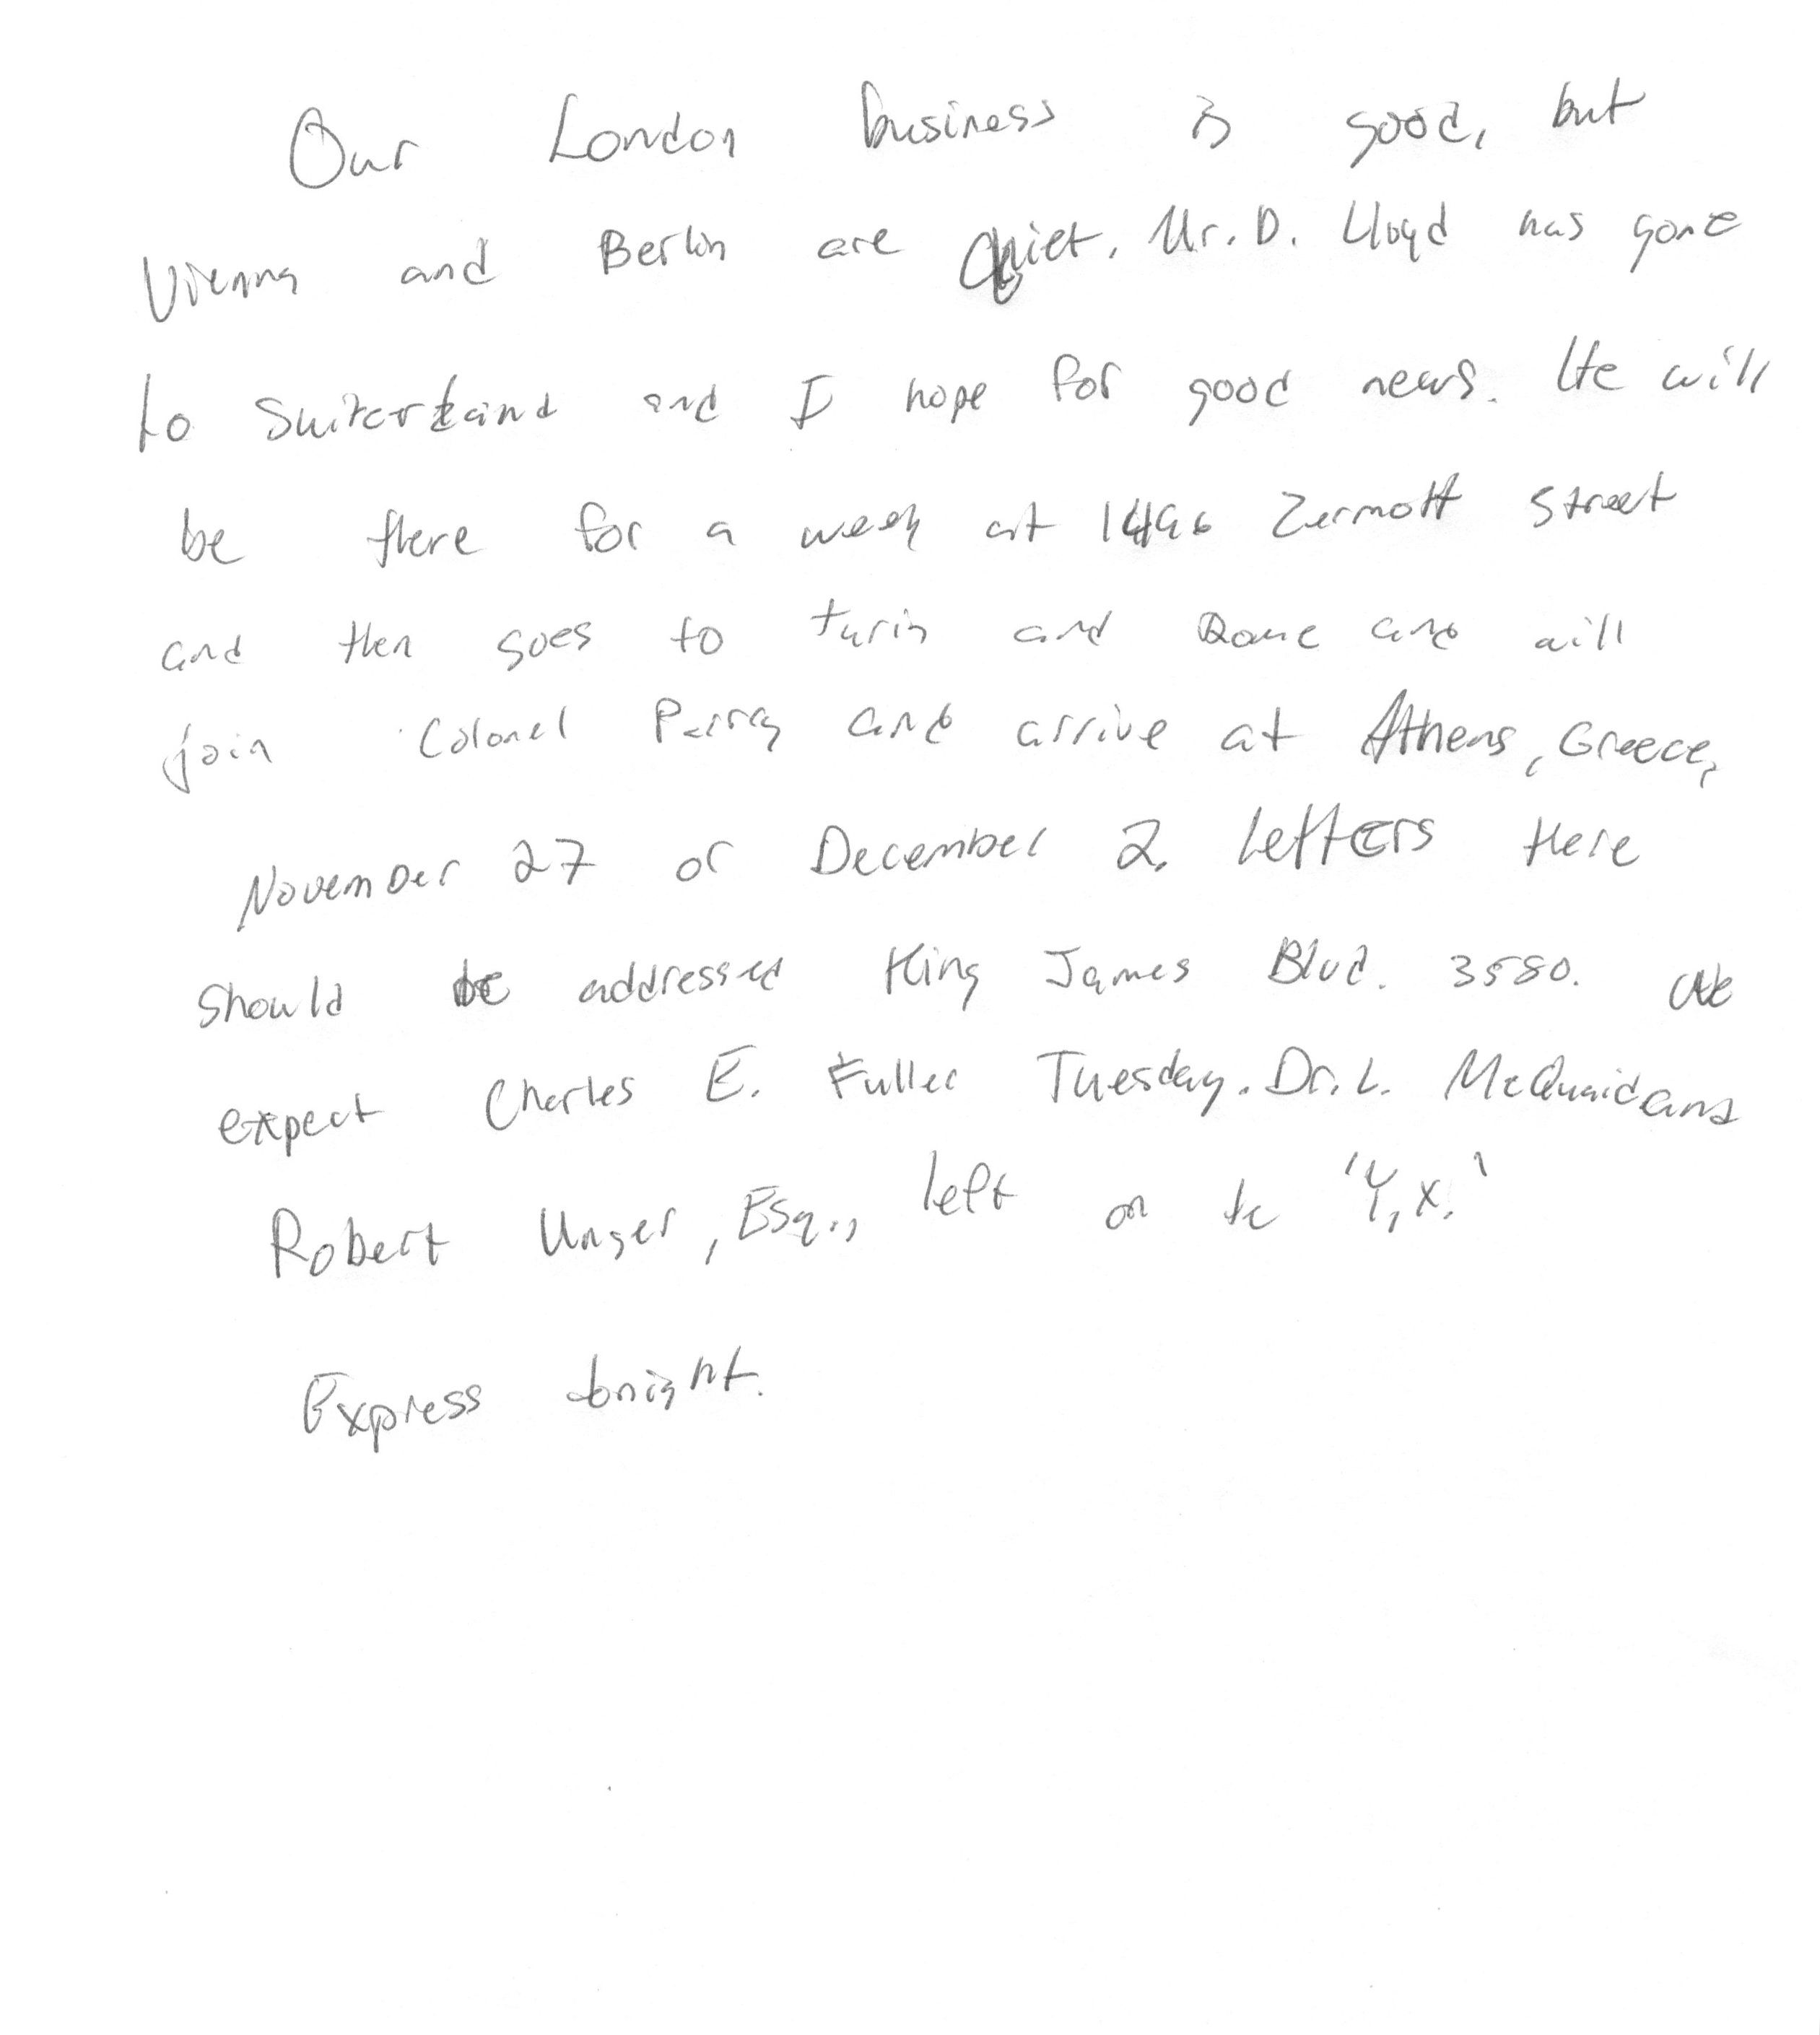 Our London business is good, but
Vienna and Berlin are quiet. Mr. D. Lloyd has gone
to Switzerland and I hope for good news. He will
be there for a week at 1496 Zermott Street
and then goes to turin and Rome and will
join Colonel Perry and arrive at Athens, Greece,
November 27 or December 2. Letters there
should be addressed King James Blvd. 3580. We
expect Charles E. Fuller Tuesday. Dr. L. McQuaid and
Robert Unger, Esq., left on the 'Y.X.'
Express tonight.